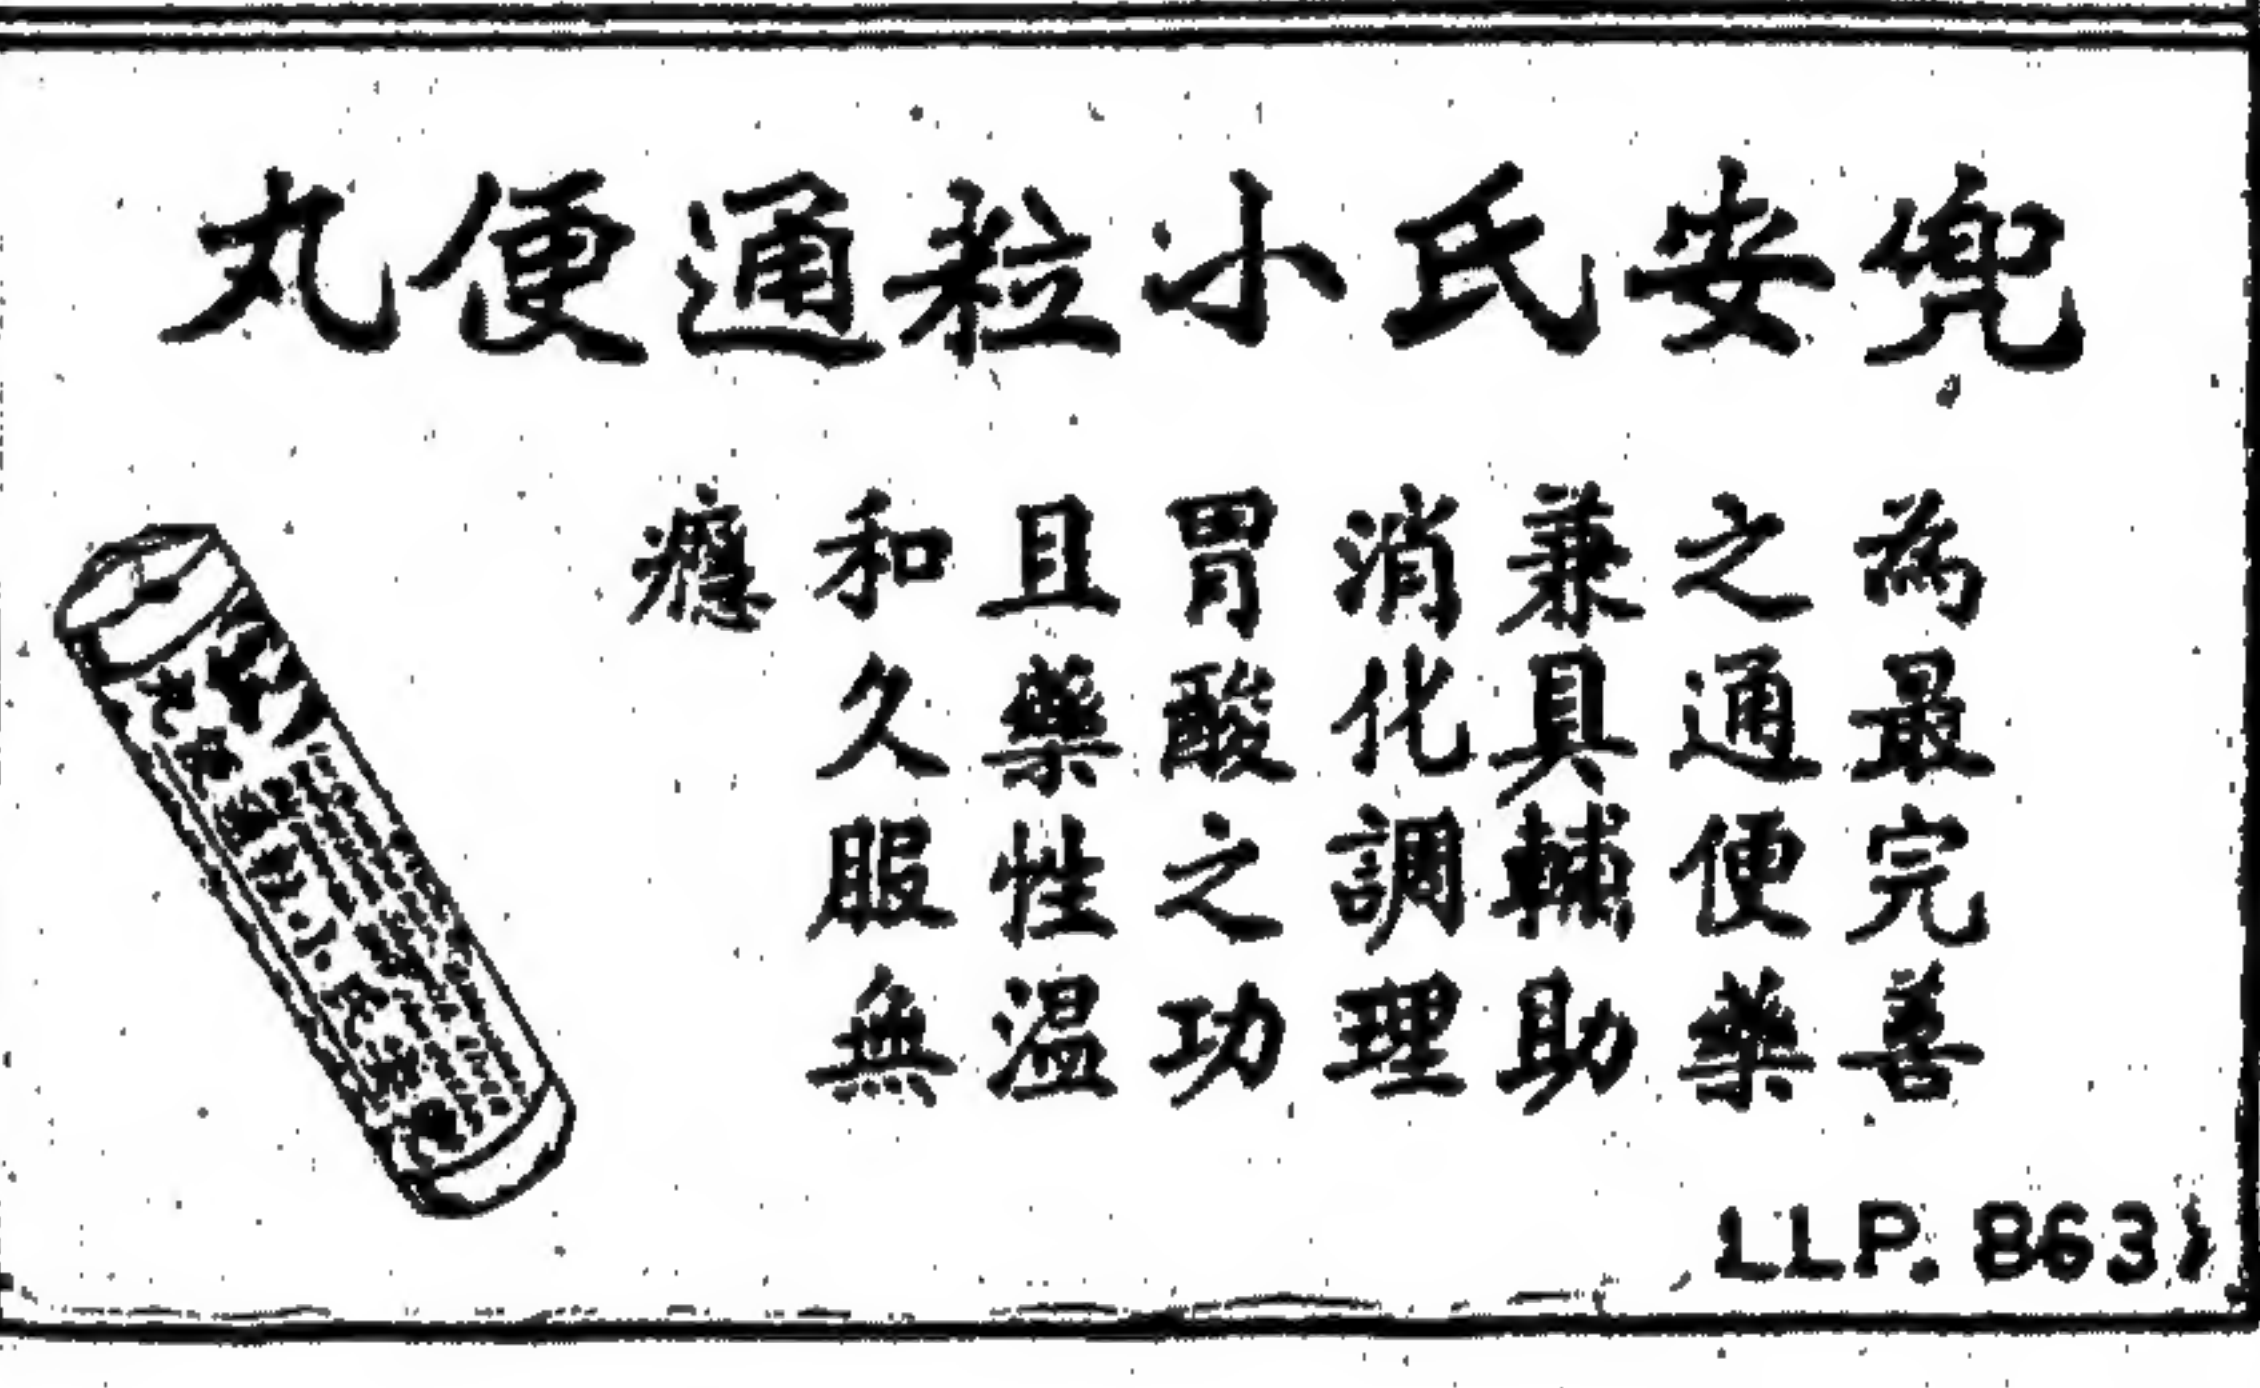 兜安氏小粒通便丸
為最完善
之通便藥
兼具輔助
消化調理
胃酸之功
且藥性温
和久服無
癮
LLP. 863